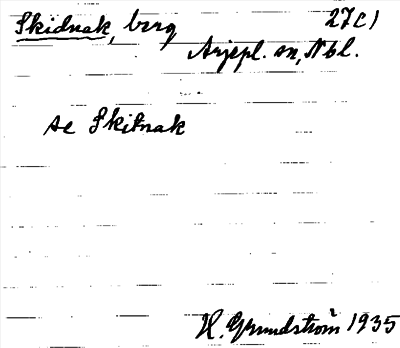 Skidnak, berg 27C1
Arjepl. sn, Nbl.
se Skitnak
H. Grundström 1935